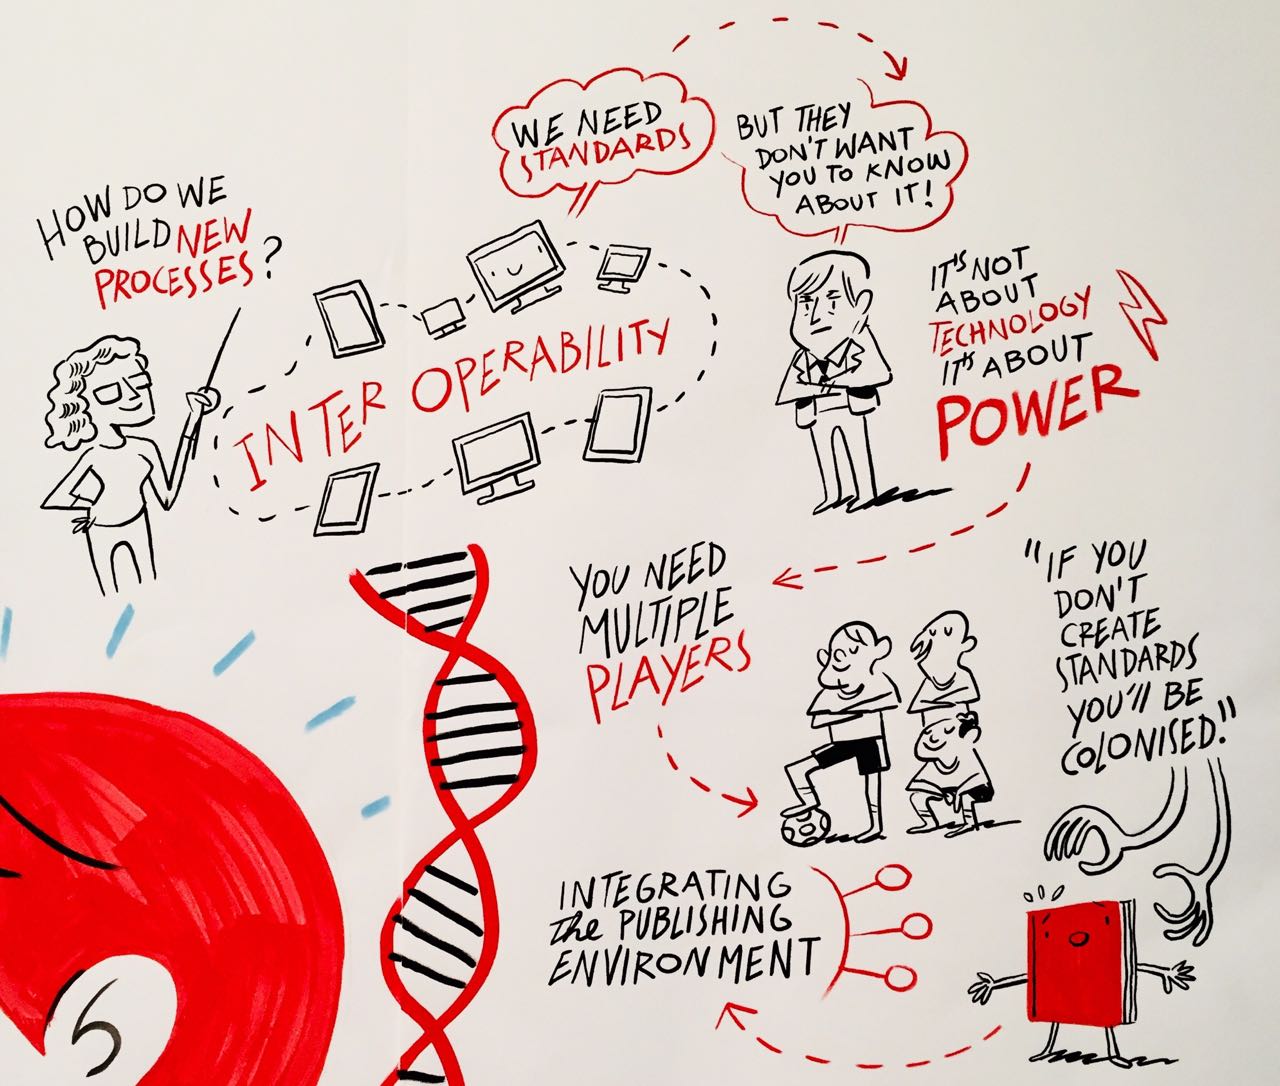 HOW DO WE
BUILD NEW
PROCESSES?
WE NEED
STANDARDS
BUT THEY
DON'T WANT
YOU TO KNOW
ABOUT IT!
INTER OPERABILITY
IT'S NOT
ABOUT
TECHNOLOGY
IT'S ABOUT
POWER
YOU NEED
MULTIPLE
PLAYERS
"IF YOU
DON'T
CREATE
STANDARDS
YOU'll BE
COLONISED."
INTEGRATING
the PUBLISHING
ENVIRONMENT